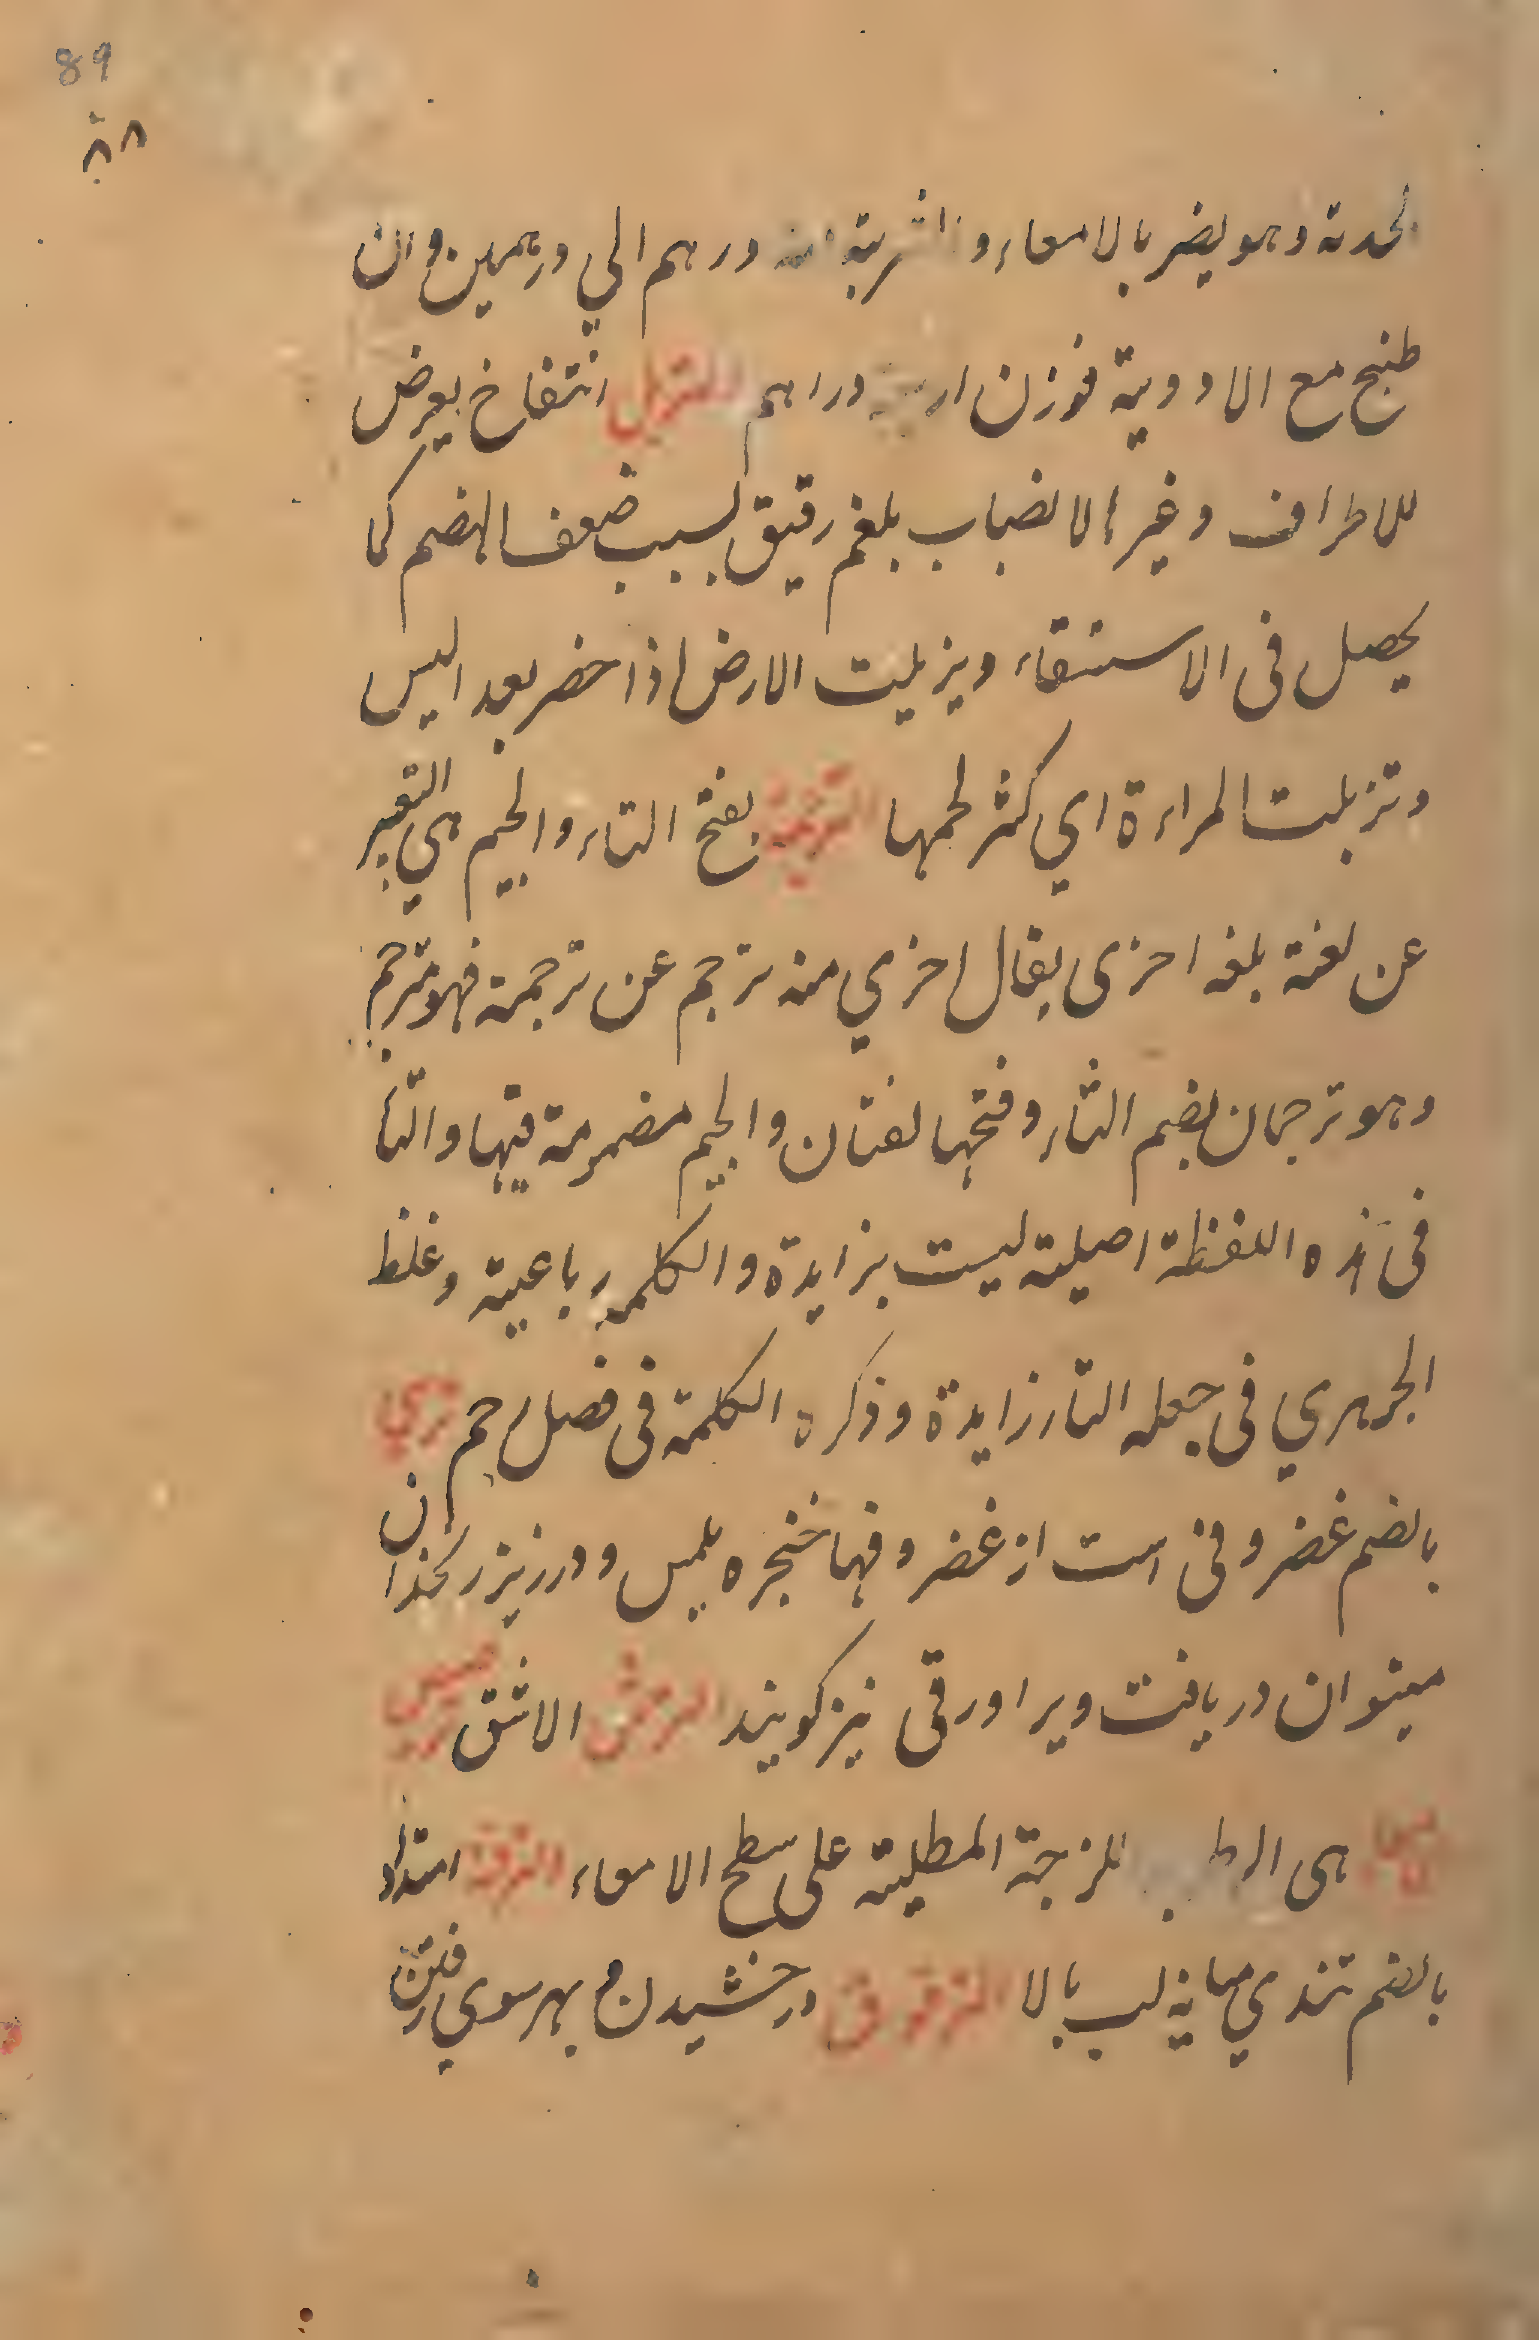 89
٨٨
لحدته وهو يضر بالامعاء والشربة منه درهم الي درهمين وان
طبخ مع الادوية فوزن اربعة دراهم التزبل انتفاخ يعرض
للاطراف وغيرها لانصباب بلغم رقيق لسبب ضعف الهضم كما
يحصل في الاستسقاء ويزبلت الارض اذا اخضر بعد اليبس
وتزبلت المراءة اي كثر لحمها الترجمة بفتح التاء والجيم هي التعبير
عن لغة بلغه اخرى يقال اخري منه ترجم عن ترجمة فهو مترجم
وهو ترجمان بضم التاء وفتحها لغتان والجيم مضمومة فيها والتاء
في هذه اللفظة اصلية ليست بزايدة والكلمه رباعية وغلط
الجوهري في جعله التاء زايدة وذكره الكلمة في فصل رجم ترسي
بالضم غضروفى است از غضروفها خنجره بلمس ودر زير زنخدان
ميتوان دريافت ويرا ورقى نيز كويند الاشق
هى الرطوبة اللزجة المطلية على سطح الامعاء الترفة امتداد
بالضم تندي ميانه لب بالا الترقرق درخشيدن و بهر سوي رفتن